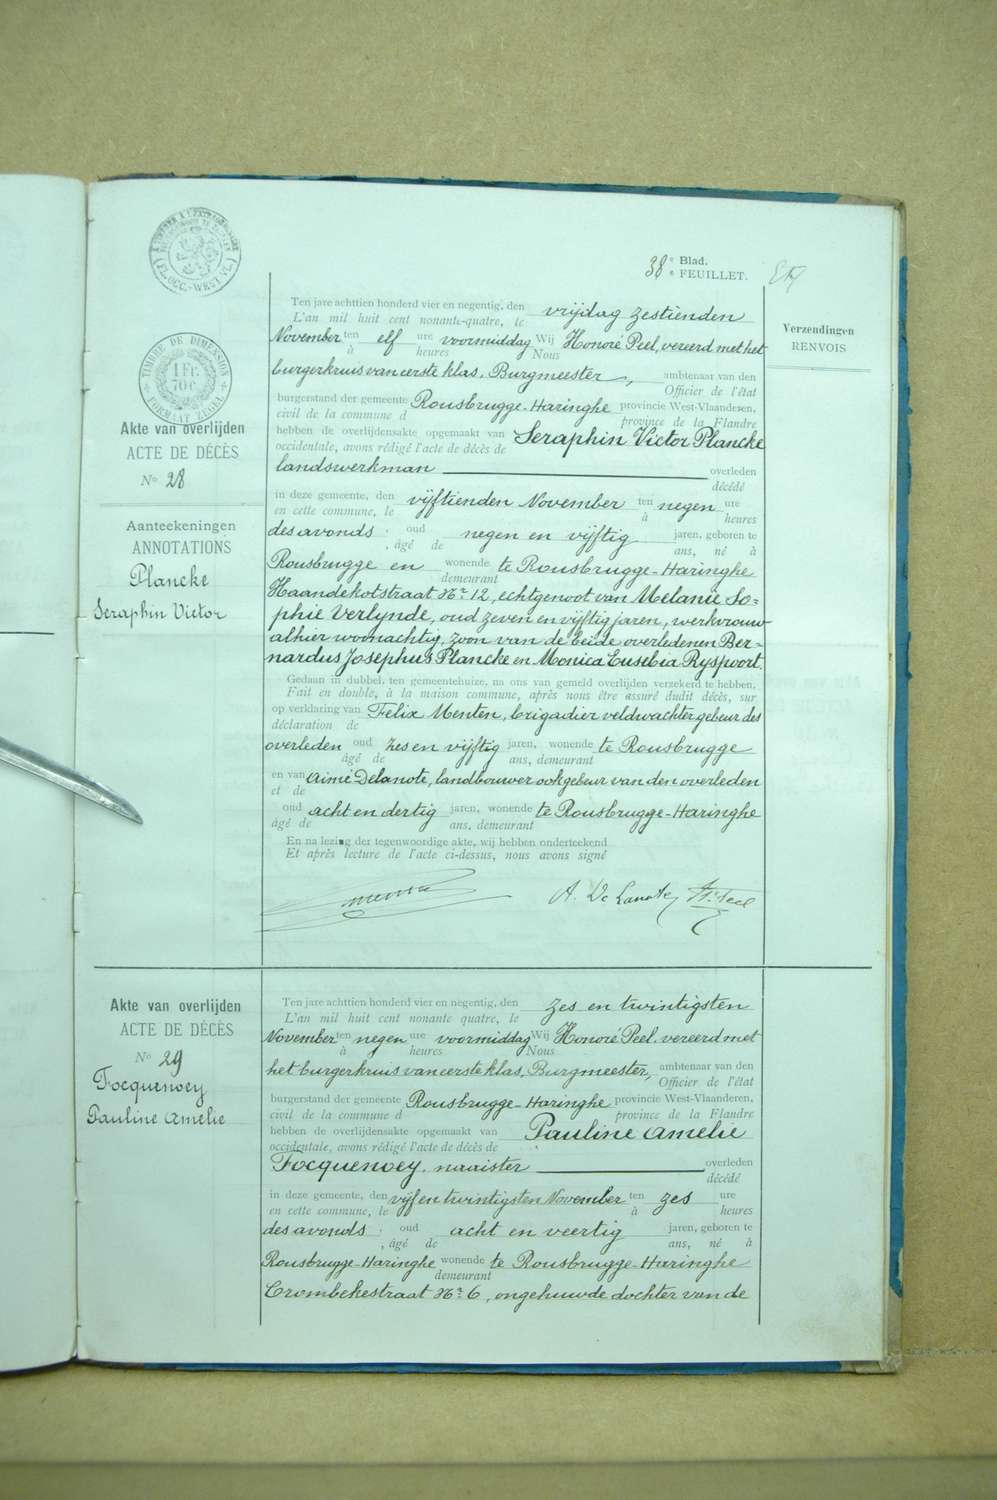 38e Blad.
e FEUILLET.
TIMBRE DE DIMENSION
1 Fr.
70c.
FORMAAT ZEGEL
Verzendingen
RENVOIS
Akte van overlijden
ACTE DE DÉCÈS
No 28
Aanteekeningen
ANNOTATIONS
Plancke
Seraphin Victor
Ten jare achttien honderd vier en negentig, den vrijdag zestienden
L'an mil huit cent nonante-quatre, le
November ten elf ure voormiddag Wij Honoré Peel, vereerd met het
à heures Nous
burgerkruis van eerste klas, Burgmeester, ambtenaar van den
Officier de l'état
burgerstand der gemeente Rousbrugge-Haringhe provincie West-Vlaanderen,
civil de la commune d province de la Flandre
hebben de overlijdensakte opgemaakt van Seraphin Victor Plancke
occidentale, avons rédigé l'acte de décès de
landswerkman overleden
décédé
in deze gemeente, den vijftienden November ten negen ure
en cette commune, le à heures
des avonds, oud negen en vijftig jaren, geboren te
, âgé de ans, né à
Rousbrugge en wonende te Rousbrugge-Haringhe
demeurant
Haandekotstraat Nr. 12, echtgenoot van Melanie So=
phie Verlynde, oud zeven en vijftig jaren, werkvrouw
alhier woonachtig, zoon van de beide overledenen Ber=
nardus Josephus Plancke en Monica Eusebia Ryspoort.
Gedaan in dubbel, ten gemeentehuize, na ons van gemeld overlijden verzekerd te hebben,
Fait en double, à la maison commune, après nous être assuré dudit décès, sur
op verklaring van Felix Menten, brigadier veldwachter gebeur des
déclaration de
overleden oud zes en vijftig jaren, wonende te Rousbrugge
âgé de ans, demeurant
en van Aimé Delanote, landbouwer ook gebeur van den overleden
et de
oud acht en dertig jaren, wonende te Rousbrugge-Haringhe
âgé de ans, demeurant
En na lezing der tegenwoordige akte, wij hebben onderteekend
Et après lecture de l'acte ci-dessus, nous avons signé
A. De Lanote
Akte van overlijden
ACTE DE DÉCÈS
No 29
Focquenoey
Pauline Amelie
Ten jare achttien honderd vier en negentig, den zes en twintigsten
L'an mil huit cent nonante quatre, le
November ten negen ure voormiddag Wij Honoré Peel, vereerd met
à heures Nous
het burgerkruis van eerste klas, Burgmeester, ambtenaar van den
Officier de l'état
burgerstand der gemeente Rousbrugge-Haringhe provincie West-Vlaanderen,
civil de la commune d province de la Flandre
hebben de overlijdensakte opgemaakt van Pauline Amelie
occidentale, avons rédigé l'acte de décès de
Focquenoey, naaister overleden
décédé
in deze gemeente, den vijf en twintigsten November ten zes ure
en cette commune, le à heures
des avonds, oud acht en veertig jaren, geboren te
, âgé de ans, né à
Rousbrugge-Haringhe wonende te Rousbrugge-Haringhe
demeurant
Crombekestraat Nr. 6, ongehuwde dochter van de